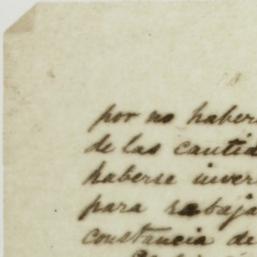 por no haber
de las cantid
haberse inver
para rebaja
constancia de